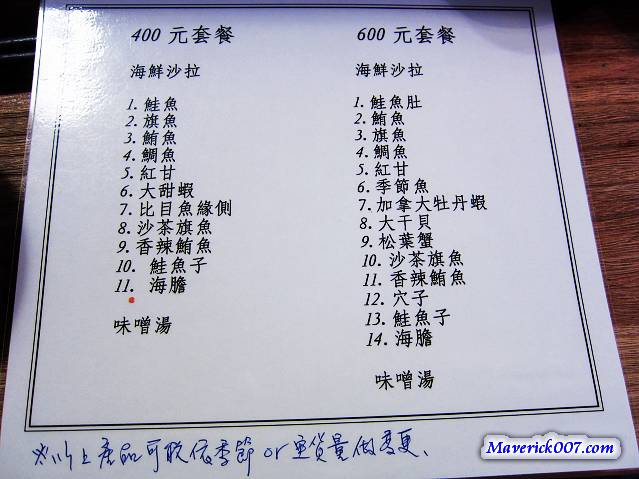 400 元套餐
海鮮沙拉
1. 鮭魚
2. 旗魚
3. 鮪魚
4. 鯛魚
5. 紅甘
6. 大甜蝦
7. 比目魚緣側
8. 沙茶旗魚
9. 香辣鮪魚
10. 鮭魚子
11. 海膽
味噌湯
600 元套餐
海鮮沙拉
1. 鮭魚肚
2. 鮪魚
3. 旗魚
4. 鯛魚
5. 紅甘
6. 季節魚
7. 加拿大牡丹蝦
8. 大干貝
9. 松葉蟹
10. 沙茶旗魚
11. 香辣鮪魚
12. 穴子
13. 鮭魚子
14. 海膽
味噌湯
※以上產品可能依季節 or 進貨量做變更、
Maverick007.com